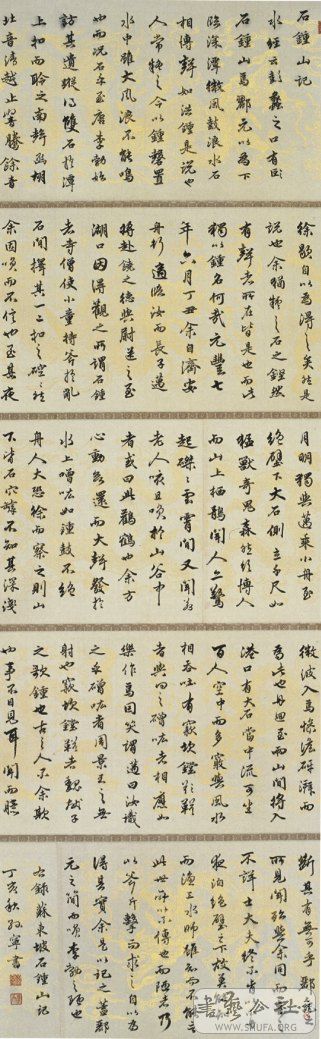 石鐘山記
水經云彭蠡之口有
石鐘山焉酈元以為下
臨深潭微風鼓浪水石
相搏聲如洪鐘是說也
人常疑之今以鐘磬置
水中雖大風浪不能鳴
也而況石乎至唐李勃始
訪其遺蹤得雙石於潭
上扣而聆之南聲函胡
北音清越止響騰餘音
徐歇自以為得之矣然是
說也余猶疑之石之鏗然
有聲者所在皆是也而此
獨以鐘名何哉元豐七
年六月丁丑余自齊安
舟行適臨汝而長子邁
將赴饒之德興尉送之至
湖口因得觀之所謂石鐘
者寺僧使小童持斧於亂
石間擇其一二扣之硿硿
余固笑而不信也至其夜
月明獨與邁乘小舟至
絕壁下大石側立千尺如
猛獸奇鬼森然欲搏人
而山上栖鶻聞人亦驚
起磔磔雲霄間又聞若
老人欬且笑於山谷中
者或曰此鸛鶴也余方
心動欲還而大聲發於
水上噌吰如鐘鼓不絕
舟人大恐徐而察之則山
下皆石穴罅不知其深淺
微波入焉涵澹澎湃而
為此也舟迴至兩山間將入
港口有大石當中流可坐
百人空中而多竅與風水
相吞吐有窾坎鏜鞳
者與向之噌吰者相應如
樂作焉因笑謂邁曰汝識
之乎噌吰者周景王之無
射也窾坎鏜鞳者魏獻子
之歌鐘也古之人不余欺
也事不目見耳聞而臆
斷其有無可乎酈元之
所見聞殆與余同而
不詳士大夫終不肯
夜泊絕壁之下故莫
而漁工水師雖知而不能言
此世所以不傳也而陋者乃
以斧斤擊而求之自以為
得其實余是以記之蓋歎酈
元之簡而笑李勃之陋也
右錄蘇東坡石鐘山記
丁亥秋孫寧書
書藝公社
WWW.SHUFA.ORG